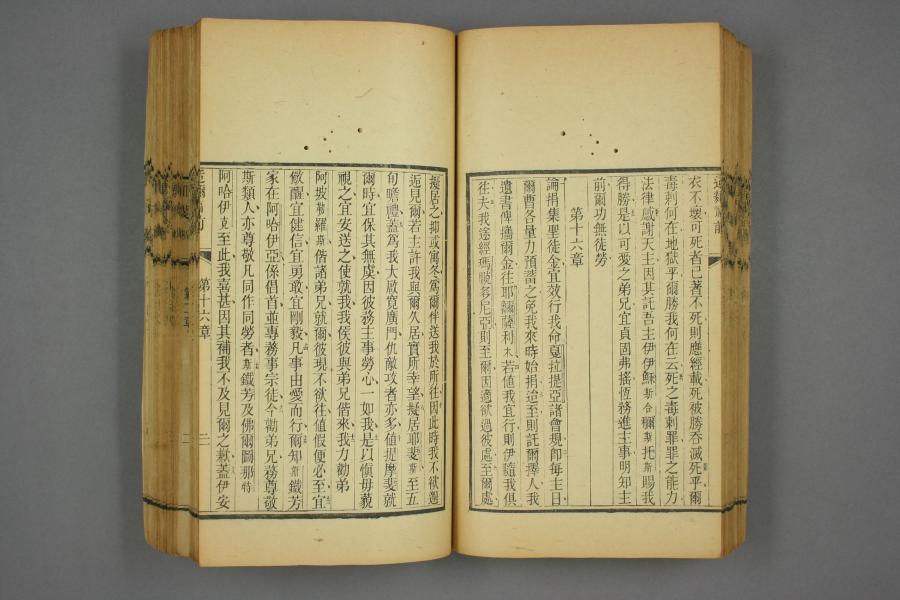 衣不壞可死者已著不死則應經載死被勝吞滅死乎爾
毒刺何在地獄乎爾勝我何在云死之毒刺罪罪之能力
法律感謝天主因其託吾主伊伊穌斯合爾斯托斯賜我
得勝是以可愛之弟兄宜貞固弗搖恆務進主事明知主
前爾功無徒勞
第十六章
論捐集聖徒金宜效行我命戛拉提亞諸會規即每主日
爾曹各量力預蓄之免我來時始捐迨至則託爾擇人我
遺書俾攜爾金往耶薩利木若值我宜行則伊隨我俱
往夫我途經瑪多尼亞則至爾因適欲過彼處至爾處
擬居之抑或寓冬爲爾伴送我於所往因此時我不欲過
逅見爾若主許我與爾久居實所幸望擬居耶斐斯至五
旬瞻禮蓋爲我大厰寬廣門仇敵攻者亦多值提摩斐就
爾時宜保其無虞因彼務主事勞心一如我是以慎毋藐
視之宜安送之使就我我俟彼與弟兄偕來我力勸弟
阿坡勒羅斯偕諸弟兄就爾彼現不欲往值假便必至宜
儆醒宜健信宜勇敢宜剛毅凡事由愛而行爾知斯鐵芳
家在阿哈伊亞係倡首並專務事宗徒今勸弟兄務尊敬
斯類人亦尊敬凡同作同勞者斯鐵芳及佛爾圖那特
阿哈伊克至此我喜甚因其補我不及見爾之歉蓋伊安
第十六章
三